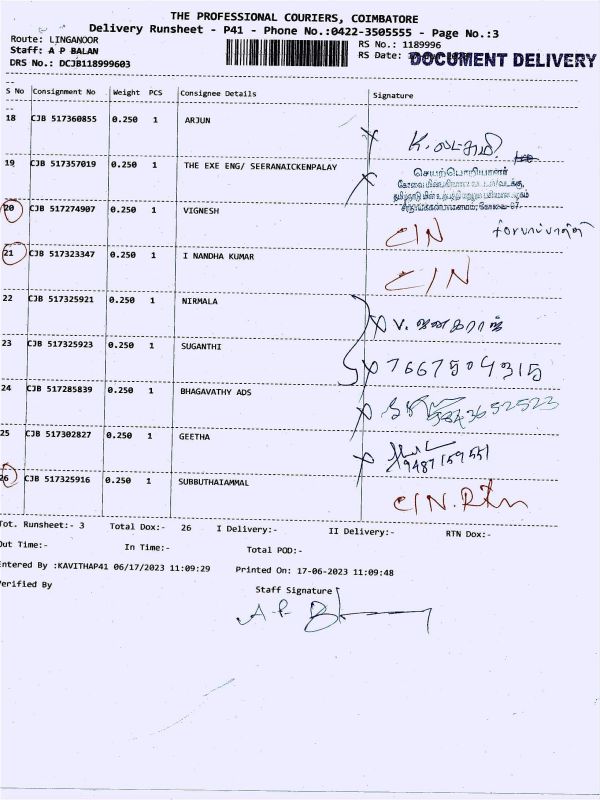 THE PROFESSIONAL COURIERS, COIMBATORE
Delivery Runsheet - P41 - Phone No.:0422-3505555 - Page No.:3
Route: LINGANOOR
RS No.: 1189996
Staff: A P BALAN
RS Date:
DOCUMENT DELIVERY
DRS No.: DCJB118999603
S No Consignment No Weight PCS Consignee Details Signature
18 CJB 517360855 0.250 1 ARJUN
K. லட்சுமி.
19 CJB 517357019 0.250 1 THE EXE ENG/ SEERANAICKENPALAY
செயற்பொறியாளர்
20 CJB 517274907 0.250 1 VIGNESH
CIN
21 CJB 517323347 0.250 1 I NANDHA KUMAR
CIN
22 CJB 517325921 0.250 1 NIRMALA
23 CJB 517325923 0.250 1 SUGANTHI
7667504315
24 CJB 517285839 0.250 1 BHAGAVATHY ADS
25 CJB 517302827 0.250 1 GEETHA
9487159551
26 CJB 517325916 0.250 1 SUBBUTHAIAMMAL
CIN. Rtn
Tot. Runsheet:- 3 Total Dox:- 26 I Delivery:- II Delivery:- RTN Dox:-
Out Time:- In Time:- Total POD:-
Entered By :KAVITHAP41 06/17/2023 11:09:29 Printed On: 17-06-2023 11:09:48
Verified By
Staff Signature